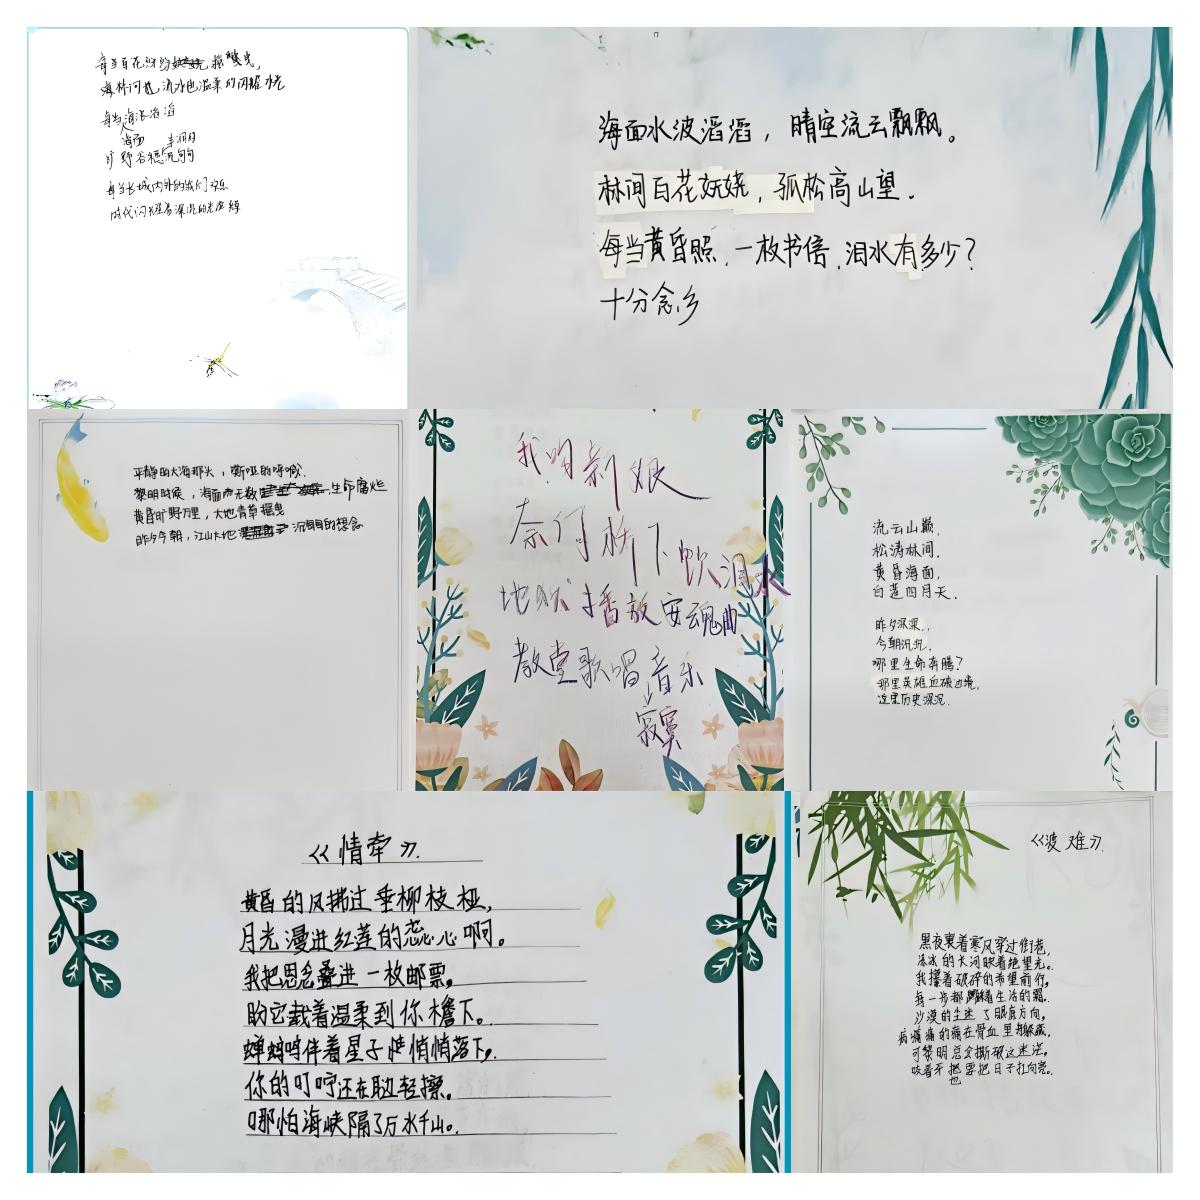 每当百花汾汾摇曳,
海林河也流水也温柔的闪耀水光
每当海浪滔滔
海面 丰润月
旷野谷穗沉甸甸
每当长城内外的我们欢乐
时代闪耀着深沉的光
海面水波滔滔，晴空流云飘飘。
林间百花妖娆，孤松高山望.
每当黄昏照.一枚书信.泪水有多少？
十分念乡
平静的大海那头，嘶哑的呼喊.
黎明时侯，海面而无数 生命腐烂
黄昏旷野万里，大地青草摇曳
昨夕今朝，江山大地 沉甸甸的想念
我的新娘
奈何桥下饮泪水
地狱播放安魂曲
教堂歌唱音乐
寂寞
流云山巅,
松涛林间.
黄昏海面,
白莲四月天.
昨夕深深.
今朝沉沉.
哪里生命有腾?
那里英雄血破边境.
这里历史深沉.
《情牵》.
黄昏的风拂过垂柳枝桠,
月光漫进红莲的蕊心啊。
我把思念叠进一枚邮票,
盼它载着温柔到你檐下。
蟬鸣伴着星子悄悄落下,
你的叮咛还在耳边轻擦。
哪怕海峡隔了万水千山.
《渡难》.
黑夜裹着寒风穿过街巷,
冻冰的长河映着绝望光.
我攥着破碎的希望前行,
每一步都 着生活的霜.
沙漠的尘迷了眼底方向,
病痛的痛在骨血里 藏.
可黎明总会撕破这迷茫.
咬着牙也要把日子扛向亮.